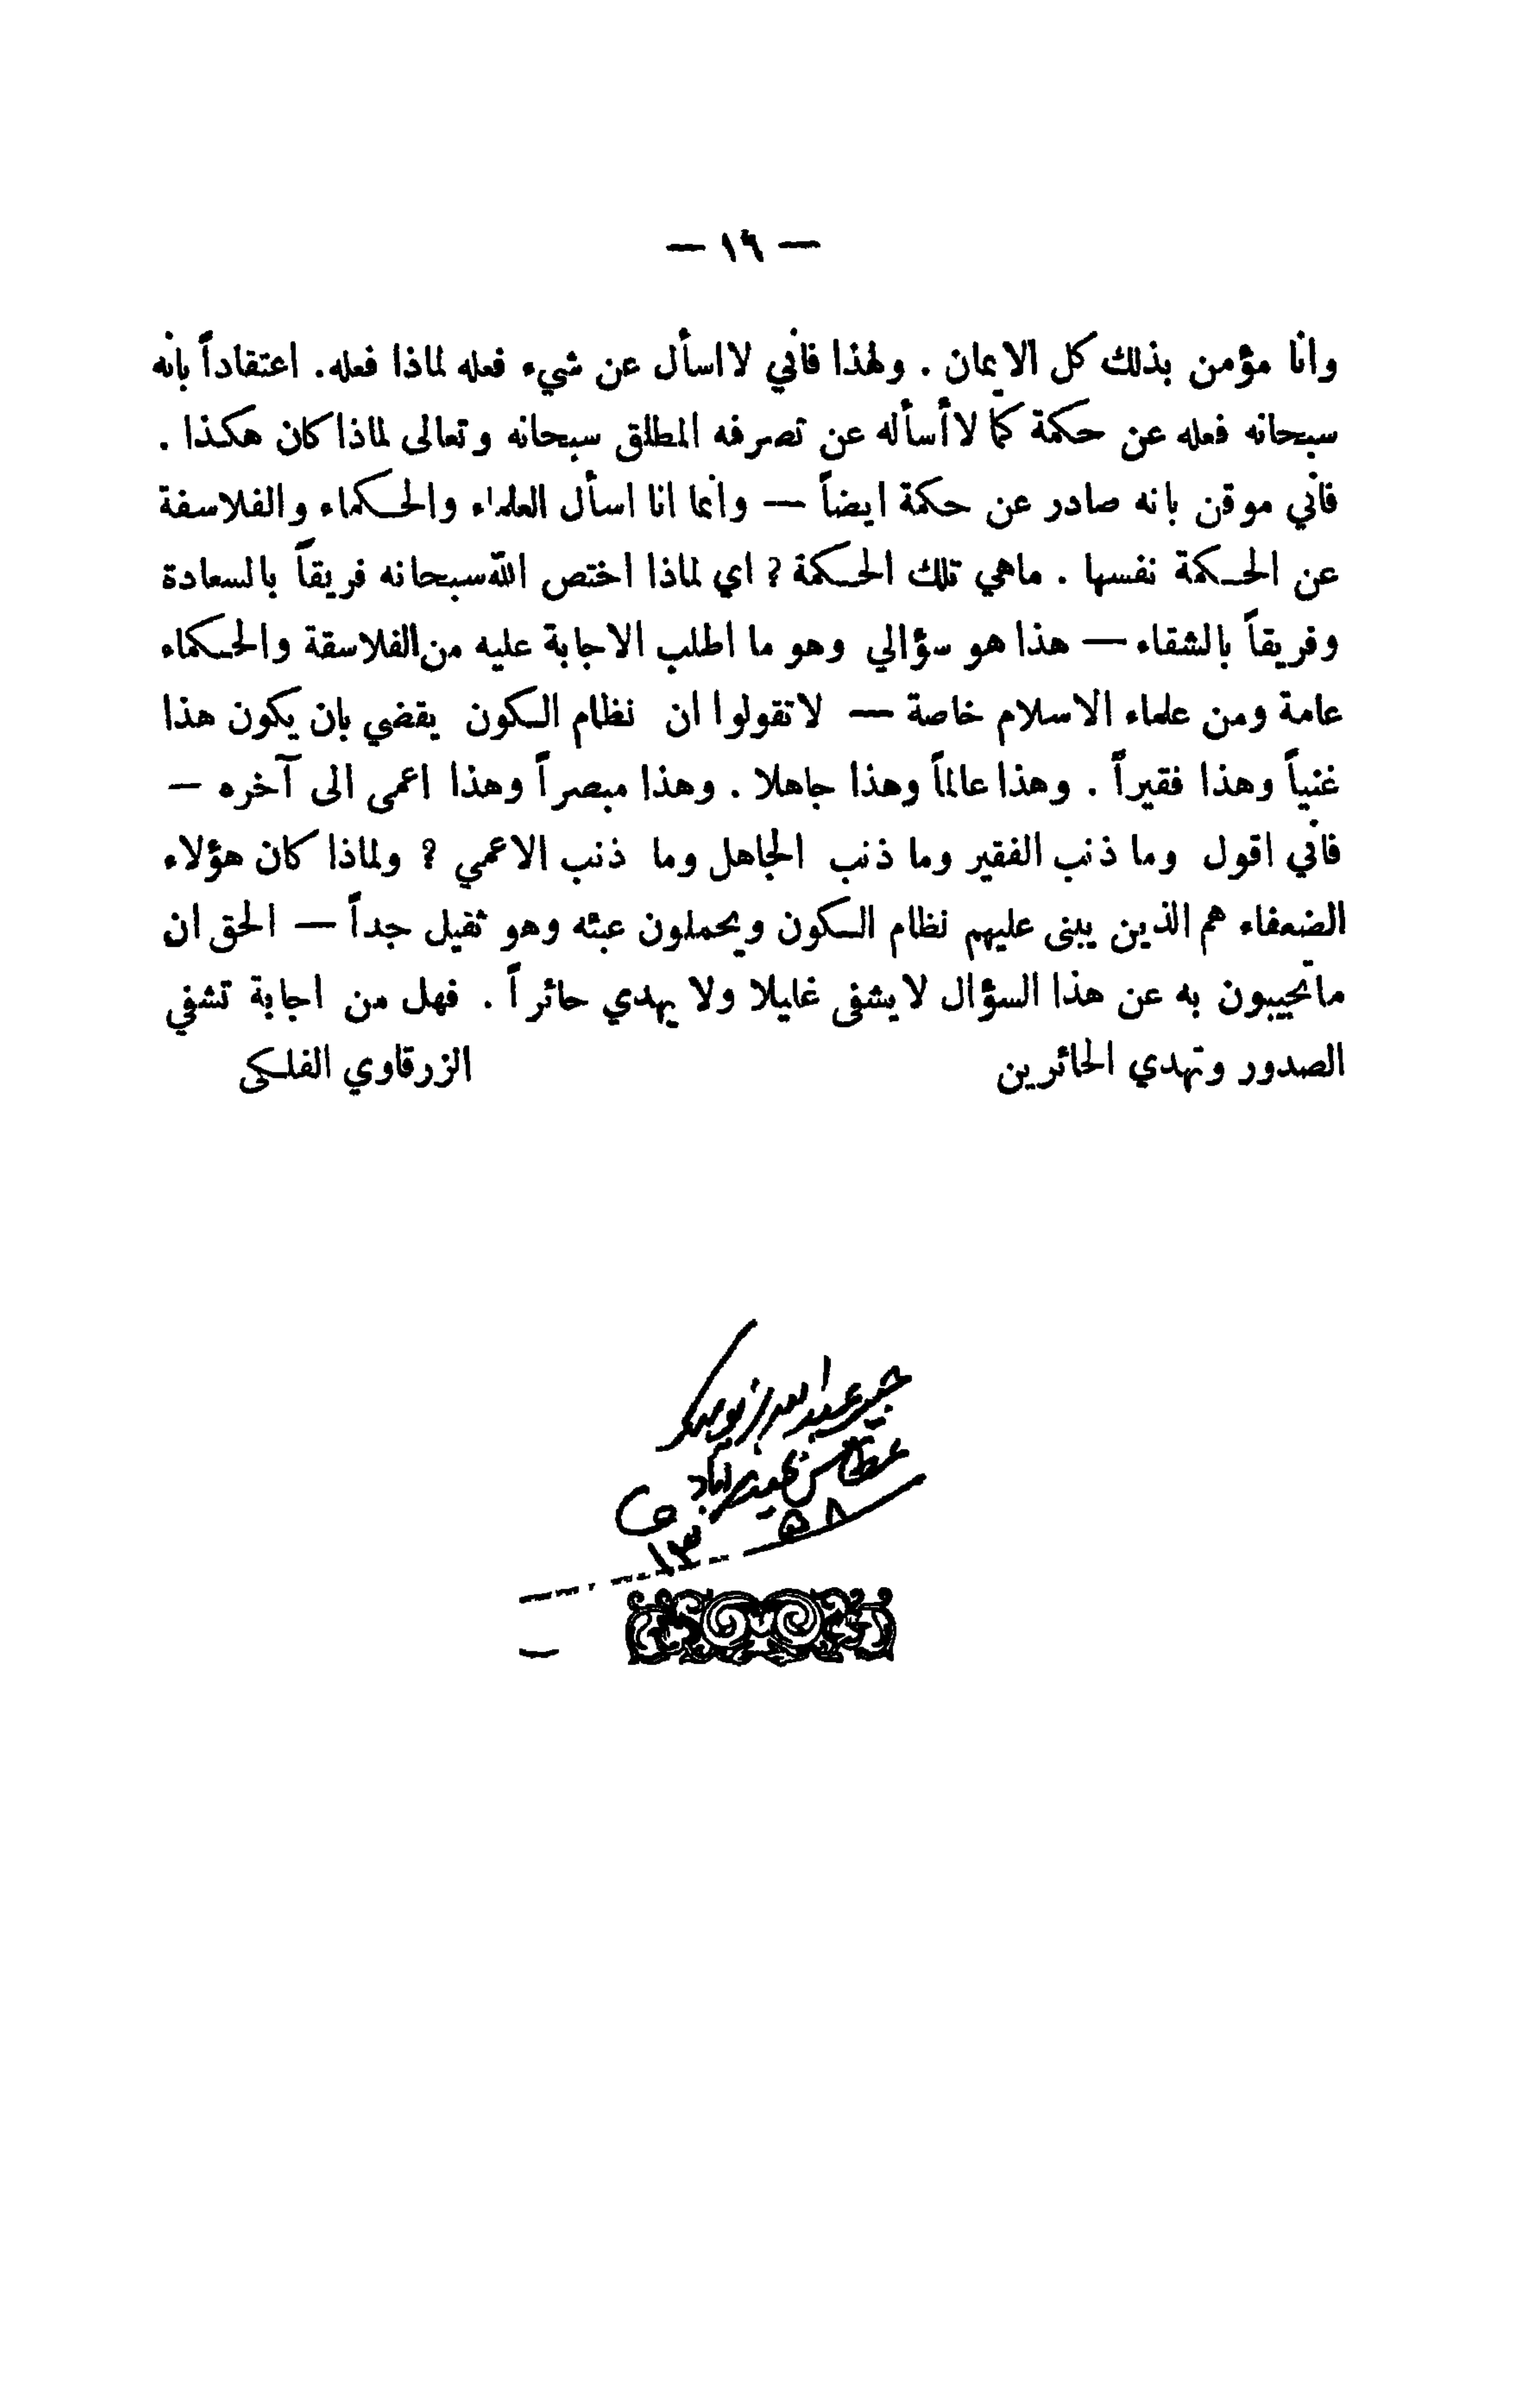 — ١٦ —
وانا مؤمن بذلك كل الايمان . ولهذا فاني لا اسأل عن شيء فعله لماذا فعله. اعتقاداً بانه
سبحانه فعله عن حكمة كما لا أسأله عن تصرفه المطلق سبحانه وتعالى لماذا كان هكذا .
فاني موقن بانه صادر عن حكمة ايضاً — وانما انا اسأل العلماء والحكماء والفلاسفة
عن الحكمة نفسها . ماهي تلك الحكمة ? اي لماذا اختص الله سبحانه فريقاً بالسعادة
وفريقاً بالشقاء — هذا هو سؤالي وهو ما اطلب الاجابة عليه من الفلاسقة والحكماء
عامة ومن علماء الاسلام خاصة — لا تقولوا ان نظام الكون يقضي بان يكون هذا
غنياً وهذا فقيراً . وهذا عالماً وهذا جاهلا . وهذا مبصراً وهذا اعمى الى آخره —
فاني اقول وما ذنب الفقير وما ذنب الجاهل وما ذنب الاعمي ? ولماذا كان هؤلاء
الضعفاء هم الذين يبنى عليهم نظام الكون ويحملون عبئه وهو ثقيل جداً — الحق ان
ما تجيبون به عن هذا السؤال لا يشفى غليلا ولا يهدي حائراً . فهل من اجابة تشفي
الصدور وتهدي الحائرين الزرقاوي الفلكى